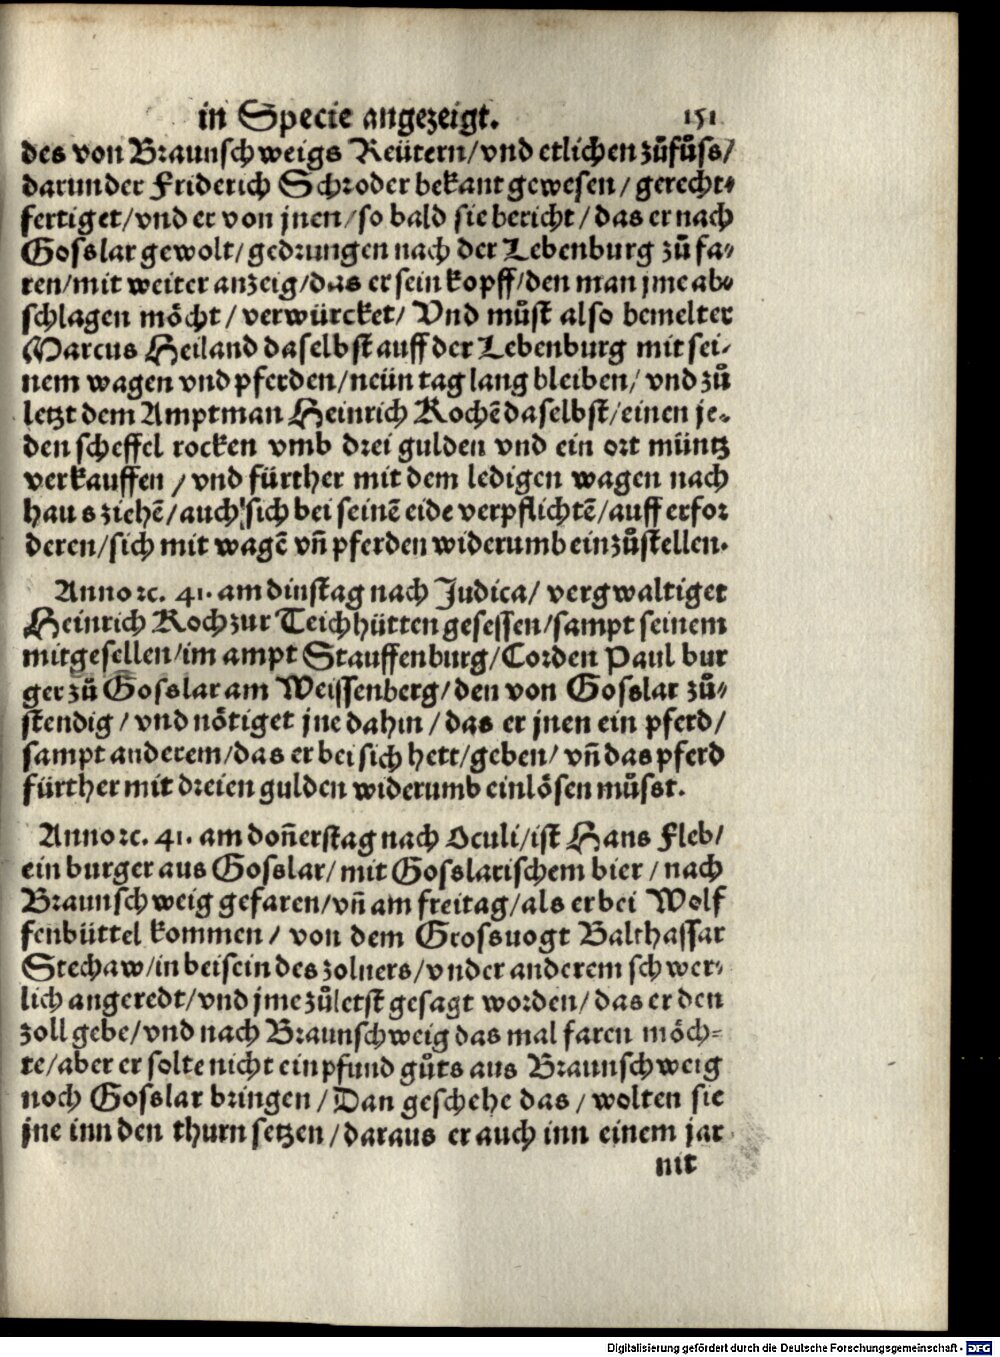 in Specie angezeigt. 151
des von Braunschweigs Reütern/vnd etlichen zůfůss/
darunder Friderich Schroder bekant gewesen/gerecht-
fertiget/vnd er von jnen/so bald sie bericht/das er nach
Gosslar gewolt/gedrungen nach der Lebenburg zů fa-
ren/mit weiter anzeig/das er sein kopff/den man jme ab-
schlagen möcht/verwürcket/Vnd můst also bemelter
Marcus Heiland daselbst auff der Lebenburg mit sei-
nem wagen vnd pferden/neün tag lang bleiben/vnd zů
letzt dem Amptman Heinrich Rochē daselbst/einen je-
den scheffel rocken vmb drei gulden vnd ein ort müntz
verkauffen/vnd fürther mit dem ledigen wagen nach
haus ziehē/auch sich bei seinē eide verpflichtē/auff erfor
deren/sich mit wagē vñ pferden widerumb einzůstellen.
Anno ꝛc. 41. am dinstag nach Judica/vergwaltiget
Heinrich Roch zur Teichhütten gesessen/sampt seinem
mitgesellen/im ampt Stauffenburg/Corden Paul bur
ger zů Gosslar am Weissenberg/den von Gosslar zů-
stendig/vnd nötiget jne dahin/das er jnen ein pferd/
sampt anderem/das er bei sich hett/geben/vñ das pferd
fürther mit dreien gulden widerumb einlösen můsst.
Anno ꝛc. 41. am doñerstag nach Oculi/ist Hans Fleb/
ein burger aus Gosslar/mit Gosslarischem bier/nach
Braunschweig gefaren/vñ am freitag/als er bei Wolf
fenbüttel kommen/von dem Grossuogt Balthassar
Stechaw/in beisein des zolners/vnder anderem schwer-
lich angeredt/vnd jme zůletst gesagt worden/das er den
zoll gebe/vnd nach Braunschweig das mal faren möch-
te/aber er solte nicht ein pfund gůts aus Braunschweig
noch Gosslar bringen/Dan geschehe das/wolten sie
jne inn den thurn setzen/daraus er auch inn einem jar
nit
Digitalisierung gefördert durch die Deutsche Forschungsgemeinschaft - DFG